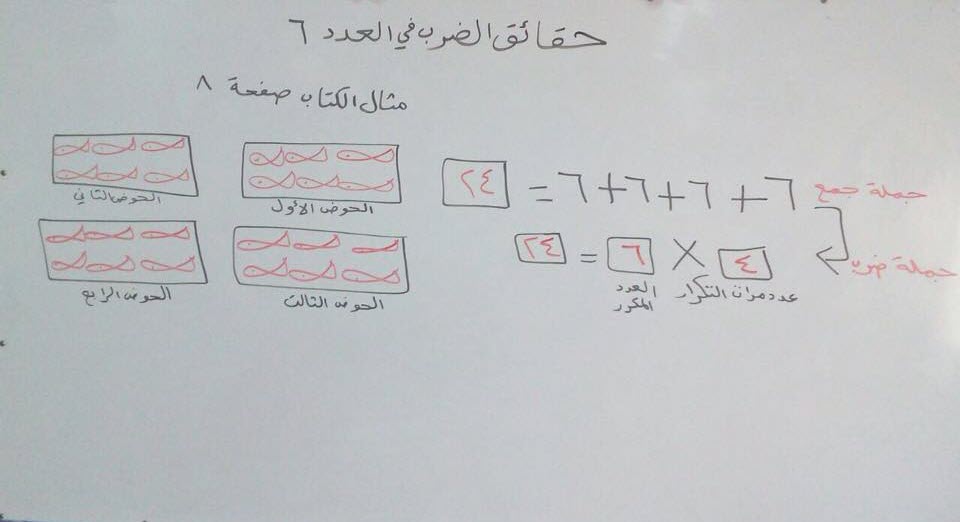 حقائق الضرب في العدد ٦
مثال الكتاب صفحة ٨
جملة جمع ٦ + ٦ + ٦ + ٦ = ٢٤
جملة ضرب ٤ × ٦ = ٢٤
عدد مرات التكرار
العدد
المكرر
الحوض الأول
الحوض الثاني
الحوض الثالث
الحوض الرابع